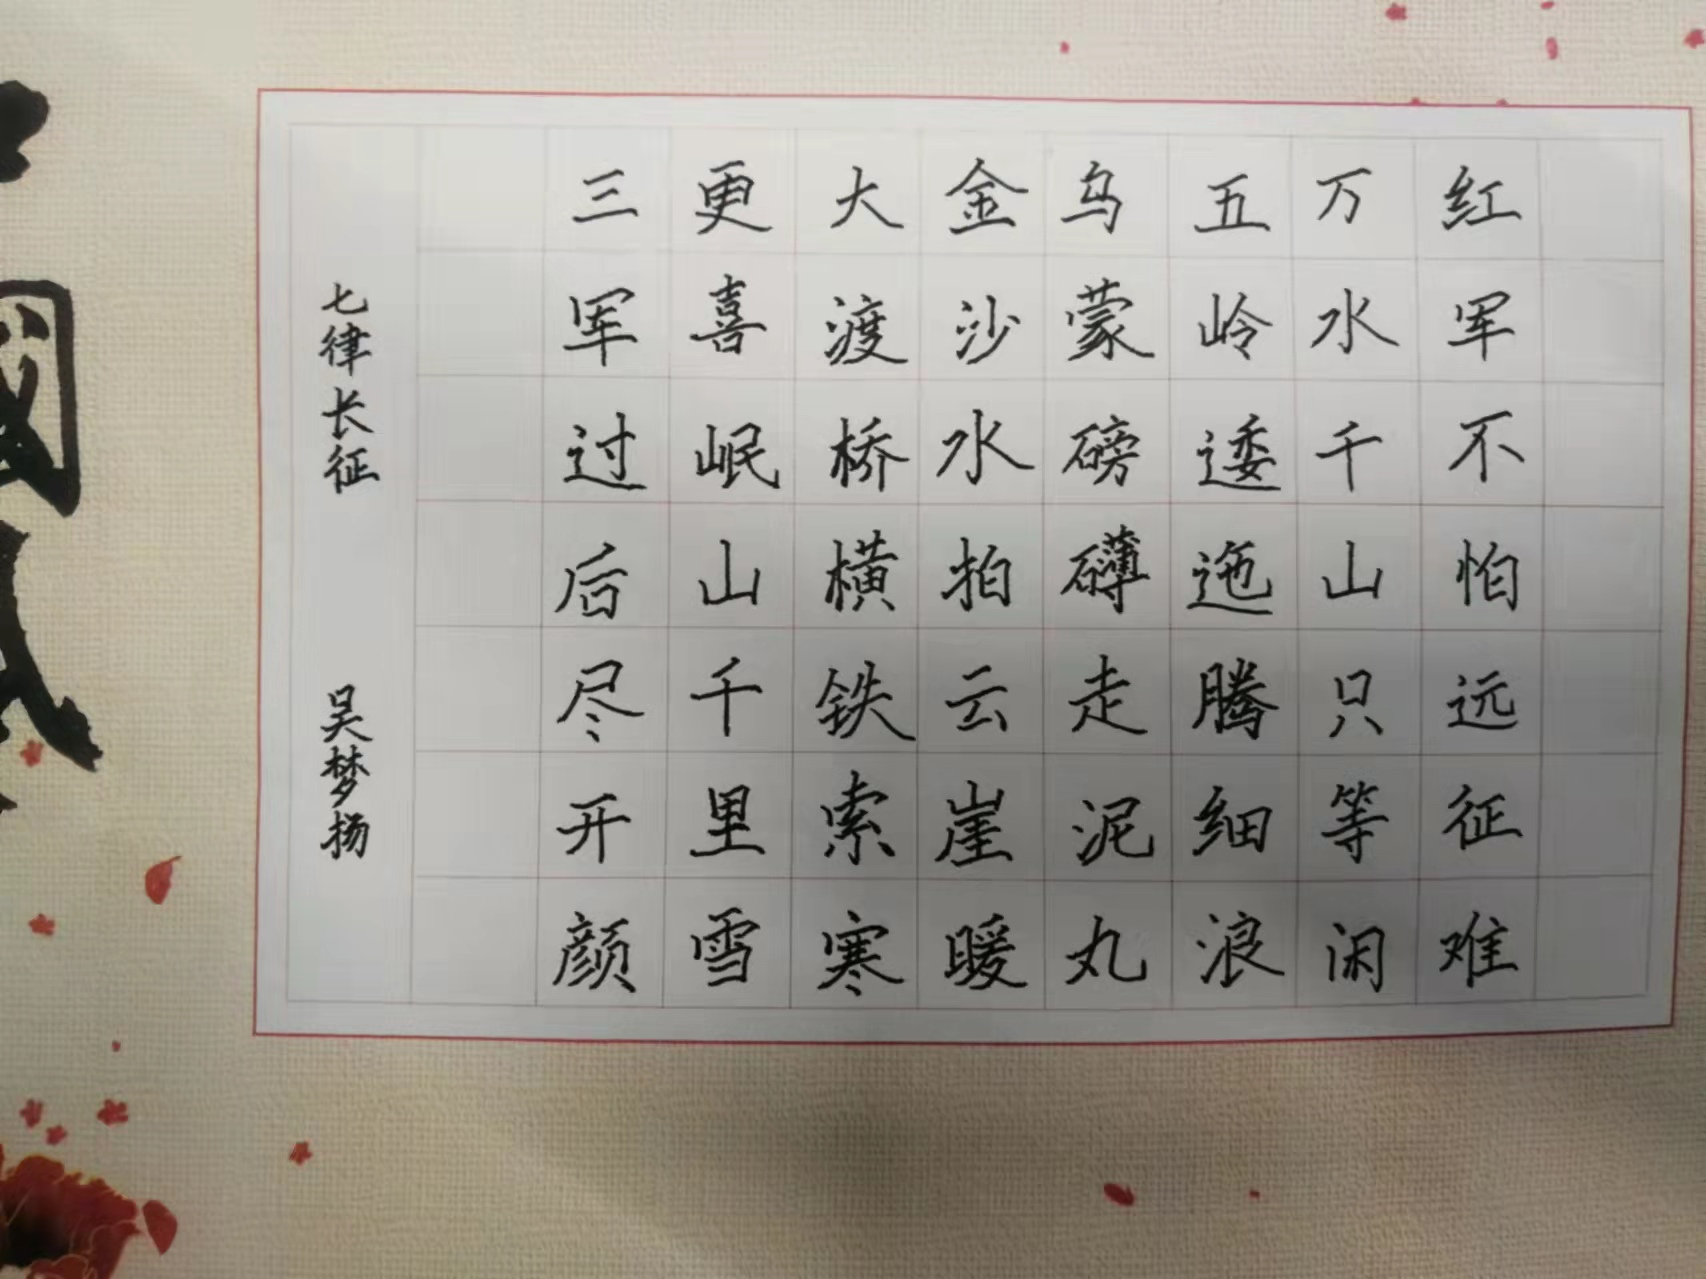 红军不怕远征难
万水千山只等闲
五岭逶迤腾细浪
乌蒙磅礴走泥丸
金沙水拍云崖暖
大渡桥横铁索寒
更喜岷山千里雪
三军过后尽开颜
七律长征
吴梦扬
國